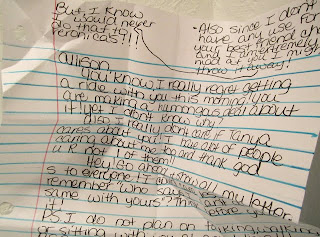 But, I know
I would never
do that to
Veronicas!!!
• Also since I don't
have any use for
your best friend cha
and I am extremely
mad at you I might
throw it away!
Allison
you know, I really regret getting
a ride with you this morning! You
are making a humongas deal about
it yet I don't know why.
also I really dont care if Tanya
cares about you. I have alot of people
caring about me too and thank god
u R not 1 of them!!
Hey! Go ahead show all my letter
s to everyone!
remember "who says I can't
same with yours"? Think
it before you
PS I do not plan on talking, walking
or sitting with you